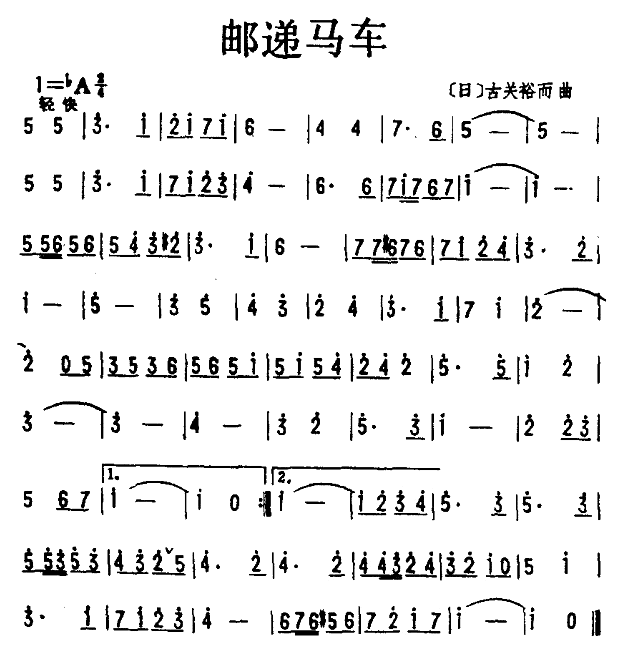 邮递马车
1=♭A 2/4
轻快
〔日〕古关裕而 曲
5 5 |3̇· i̇ |2̇i̇ 7i̇ |6 — |4 4 |7· 6 |5 — |5 — |
5 5 |3̇· i̇ |7i̇ 2̇3̇ |4̇ — |6· 6 |7i̇7 67 |i̇ — |i̇ — |
556 56 |54̇ 3̇#2̇ |3̇· i̇ |6 — |77#6 76 |7i̇ 2̇4̇ |3̇· 2̇ |
i̇ — |5̇ — |3̇ 5̇ |4̇ 3̇ |2̇ 4̇ |3̇· i̇ |7 i̇ |2̇ — |
2̇ 05 |35 36 |56 5i̇ |5i̇ 54̇ |2̇4̇ 2̇ |5̇· 5̇ |i̇ 2̇ |
3̇ — |3̇ — |4̇ — |3̇ 2̇ |5̇· 3̇ |i̇ — |2̇ 2̇3̇ |
1. 2.
5 67 |i̇ — |i̇ 0 :‖ i̇ — |i̇2̇ 3̇4̇ |5̇· 3̇ |5̇· 3̇ |
5̇5̇3̇ 5̇3̇ |4̇3̇ 2̇ˇ5 |4̇· 2̇ |4̇· 2̇ |4̇4̇3̇ 2̇4̇ |3̇2̇ i̇0 |5 i̇ |
3̇· i̇ |7i̇ 2̇3̇ |4̇ — |676 #56 |72̇ i̇7 |i̇ — |i̇ 0 ‖